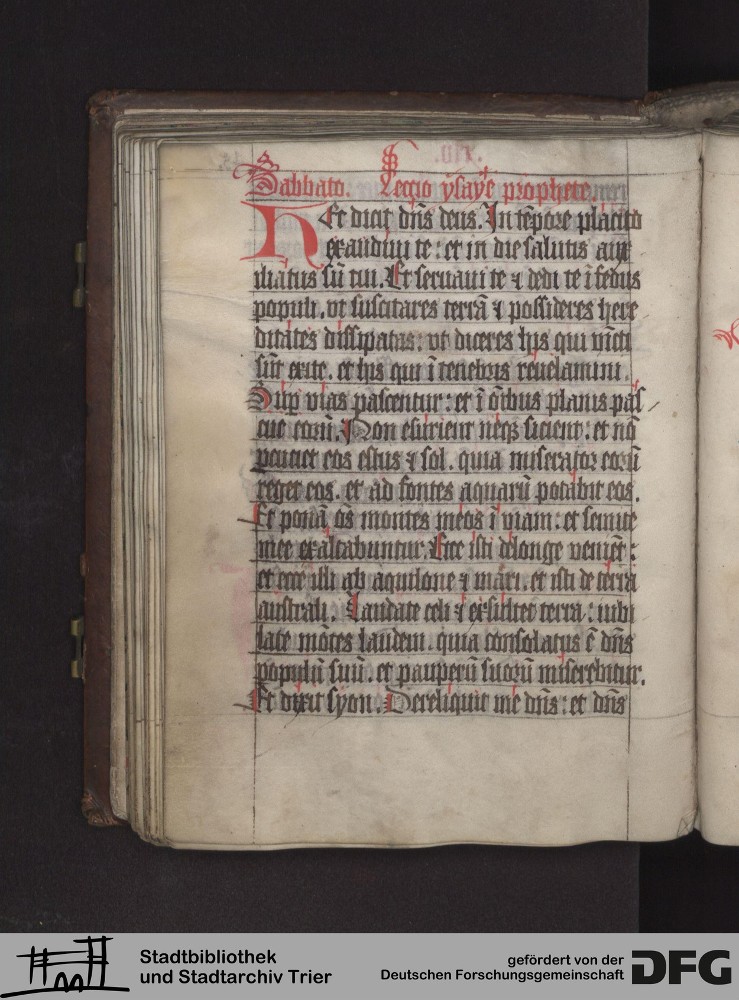 Sabbato. Lectio ysaye prophete.
Hec dicit dn̄s deus. In tēpore placito
exaudiui te : et in die salutis auxi
liatus sū tui. Et seruaui te ⁊ dedi te ī fedus
populi. vt suscitares terrā ⁊ possideres here
ditates dissipatas : vt diceres hijs qui vīcti
sūt exite. et hijs qui ī tenebris reuelamini.
Sup vias pascentur : et ī oībus planis pas
cue eorū. Non esurient neqȝ sicient : et nō
percuciet eos estus ⁊ sol. quia miserator eorū
reget eos. et ad fontes aquarū potabit eos.
Et ponā oēs montes meos ī viam : et semite
mee exaltabuntur. Ecce isti delonge veniēt :
et ecce illi ab aquilone ⁊ mari. et isti de terra
australi. Laudate celi ⁊ exsultet terra : iubi
late mōtes laudem. quia consolatus ē dn̄s
populū suū. et pauperū suorū miserebitur.
Et dixit syon. Dereliquit me dn̄s : et dn̄s
Stadtbibliothek
und Stadtarchiv Trier
gefördert von der
Deutschen Forschungsgemeinschaft
DFG